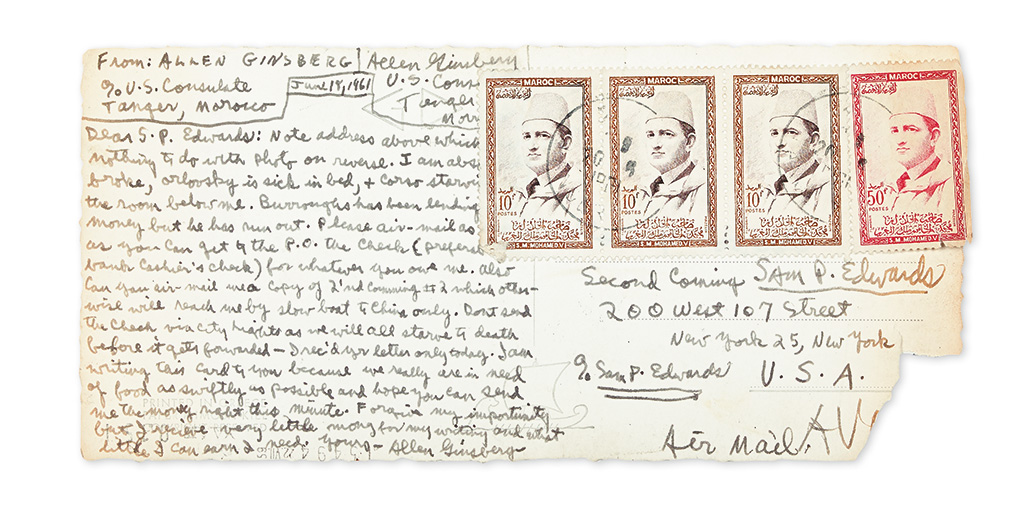 From: ALLEN GINSBERG
℅ U.S. Consulate
Tanger, Morocco
June 19, 1961
Allen Ginsberg
U.S. Cons
Tanger
Moro
Dear S. P. Edwards: Note address above which
nothing to do with photo on reverse. I am abso
broke, orlovsky is sick in bed, + Corso starvi
the room below me. Burroughs has been lending
money but he has run out. Please air-mail as
as you can get to the P.O. the check (prefera
bank cashier's check) for whatever you owe me. Also
Can you air-mail me a copy of 2'nd Comming #2 which other-
wise will reach me by slow boat to China only. Dont send
the Check via city lights as we will all starve to death
before it gets forwarded – I rec'd yr letter only today. I am
writing this card to you because we really are in need
of food as swiftly as possible and hope you can send
me the money right this minute. Forgive my importunity
but I receive very little money for my writing and what
little I can earn I need. Yours – Allen Ginsberg –
PRINTED IN
MAROC
10F
POSTES
S.M. MOHAMED V
MAROC
10F
POSTES
S.M. MOHAMED V
MAROC
10F
POSTES
S.M. MOHAMED V
MAROC
50F
POSTES
S.M. MOHAMED V
Second Coming SAM P. Edwards
200 West 107 Street
New York 25, New York
℅ Sam P. Edwards
U.S.A.
Air Mail.